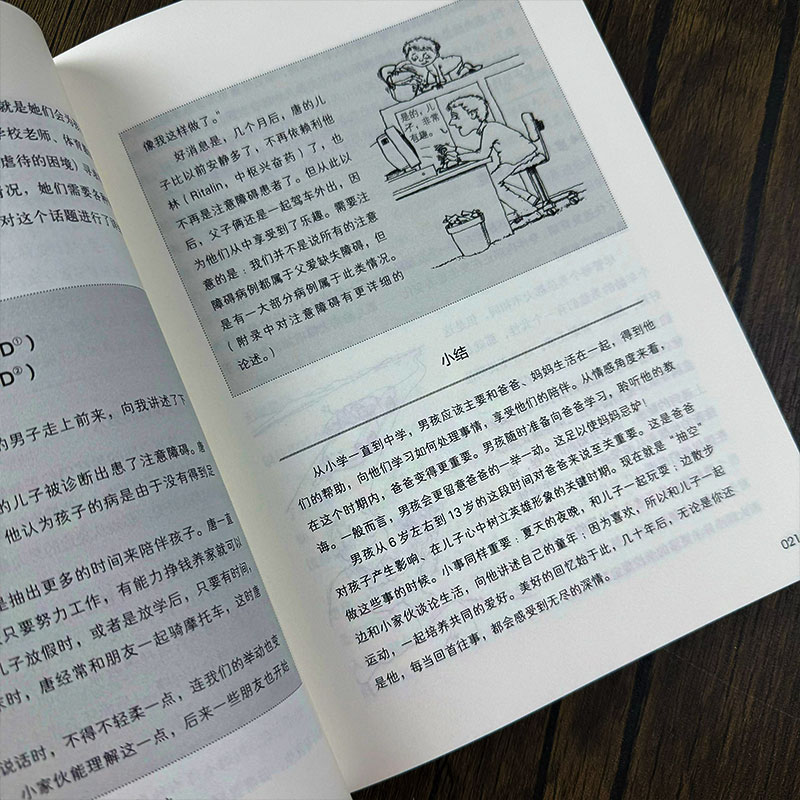 就是她们会为
学校老师、体
虐待的困境）
情况，她们需要各
对这个话题进行了
D①）
D②）
的男子走上前来，向我讲述了下
的儿子被诊断出患了注意障碍。唐
他认为孩子的病是由于没有得到足
是抽出更多的时间来陪伴孩子。唐一直
只要努力工作，有能力挣钱养家就可以
儿子放假时，或者是放学后，只要有时间，
时，唐经常和朋友一起骑摩托车，这时唐
说话时，不得不轻柔一点，连我们的举动也变
小家伙能理解这一点，后来一些朋友也开始
像我这样做了。”
好消息是，几个月后，唐的儿
子比以前安静多了，不再依赖利他
林（Ritalin，中枢兴奋药）了，也
不再是注意障碍患者了。但从此以
后，父子俩还是一起驾车外出，因
为他们从中享受到了乐趣。需要注
意的是：我们并不是说所有的注意
障碍病例都属于父爱缺失障碍，但
是有一大部分病例属于此类情况。
（附录中对注意障碍有更详细的
论述。）
是的，儿
子，非常
有趣。
小结
从小学一直到中学，男孩应该主要和爸爸、妈妈生活在一起，得到他
们的帮助，向他们学习如何处理事情，享受他们的陪伴。从情感角度来看，
在这个时期内，爸爸变得更重要。男孩随时准备向爸爸学习，聆听他的教
诲。一般而言，男孩会更留意爸爸的一举一动。这足以使妈妈忌妒！
男孩从6岁左右到13岁的这段时间对爸爸来说至关重要。这是爸爸
对孩子产生影响，在儿子心中树立英雄形象的关键时期。现在就是“抽空”
做这些事的时候。小事同样重要：夏天的夜晚，和儿子一起玩耍；边散步
边和小家伙谈论生活，向他讲述自己的童年；因为喜欢，所以和儿子一起
运动，一起培养共同的爱好。美好的回忆始于此，几十年后，无论是你还
是他，每当回首往事，都会感受到无尽的深情。
021